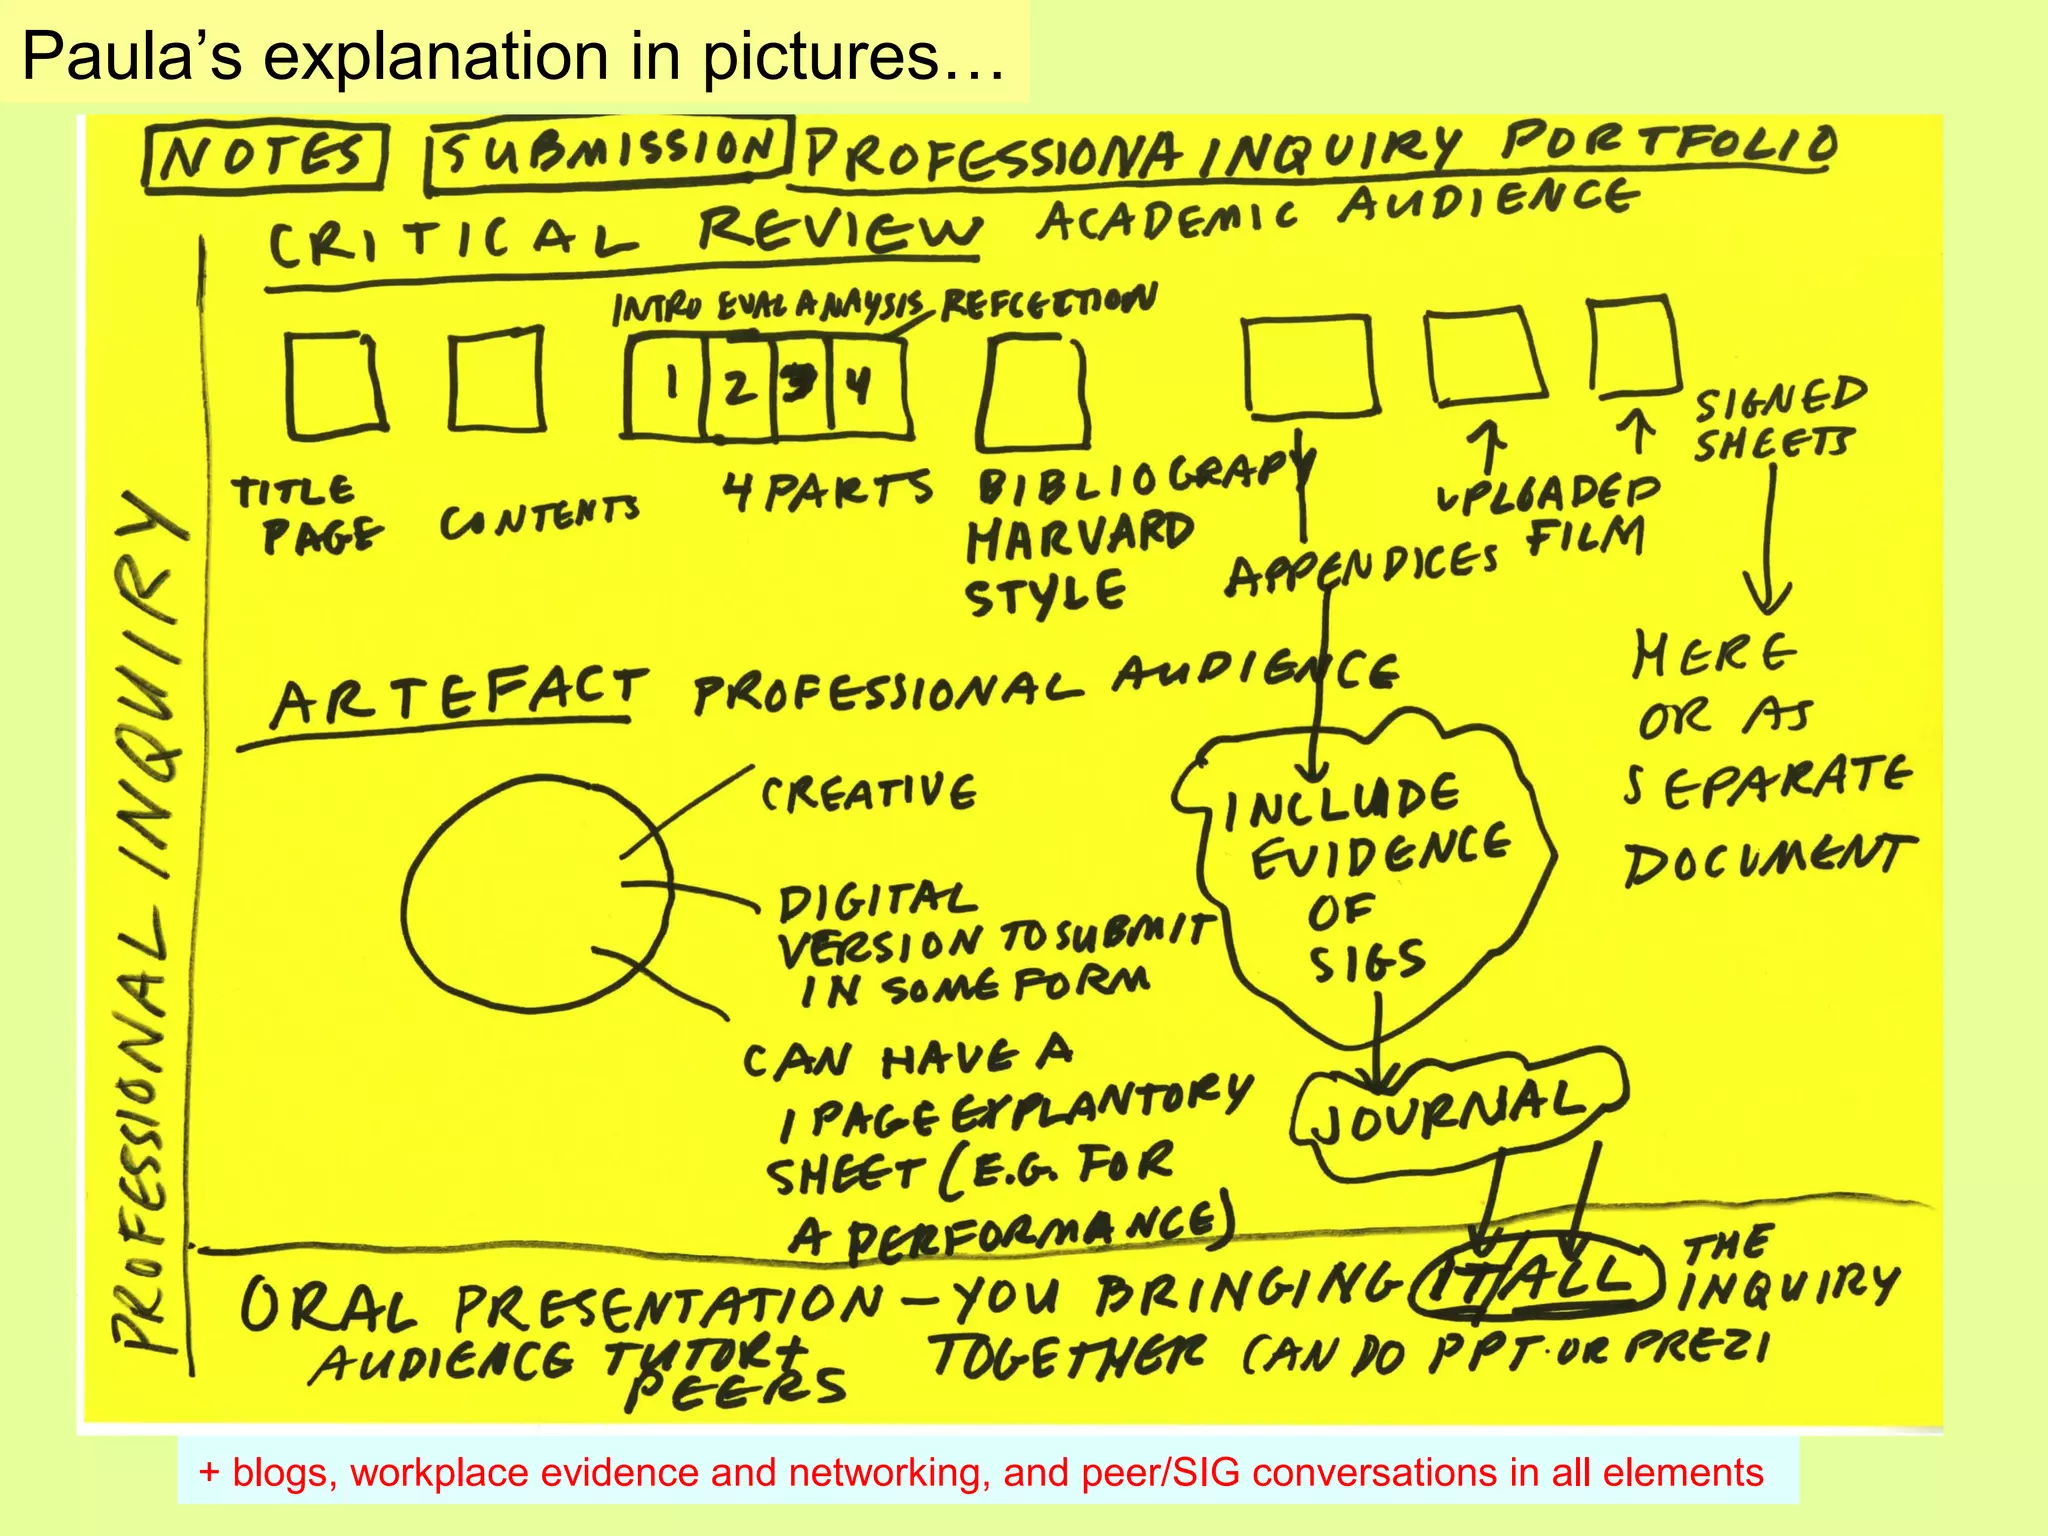 Paula’s explanation in pictures…
NOTES SUBMISSION PROFESSIONA INQUIRY PORTFOLIO
CRITICAL REVIEW ACADEMIC AUDIENCE
INTRO EVAL ANAYSIS REFLECTION
1 2 3 4
TITLE PAGE
CONTENTS
4 PARTS
BIBLIOGRAPY
HARVARD
STYLE
APPENDICES
UPLOADED
FILM
SIGNED
SHEETS
HERE
OR AS
SEPARATE
DOCUMENT
PROFESSIONAL INQUIRY
ARTEFACT PROFESSIONAL AUDIENCE
CREATIVE
DIGITAL
VERSION TO SUBMIT
IN SOME FORM
CAN HAVE A
1 PAGE EXPLANTORY
SHEET (E.G. FOR
A PERFORMANCE)
INCLUDE
EVIDENCE
OF
SIGS
JOURNAL
ORAL PRESENTATION – YOU BRINGING IT/ALL THE INQUIRY
AUDIENCE TUTOR + PEERS
TOGETHER CAN DO PPT. OR PREZI
+ blogs, workplace evidence and networking, and peer/SIG conversations in all elements